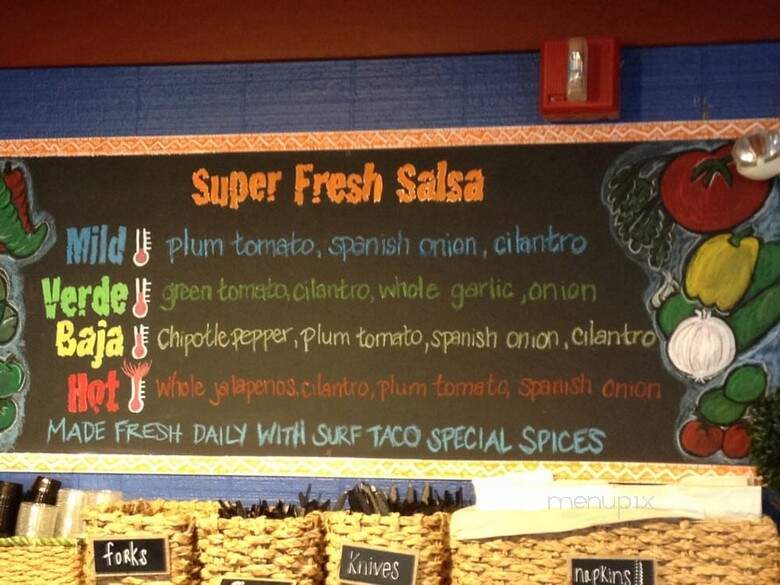 Super Fresh Salsa
Mild plum tomato, spanish onion, cilantro
Verde green tomato, cilantro, whole garlic, onion
Baja Chipotle pepper, plum tomato, spanish onion, cilantro
Hot Whole jalapenos, cilantro, plum tomato, spanish onion
MADE FRESH DAILY WITH SURF TACO SPECIAL SPICES
menupix
forks
Knives
napkins